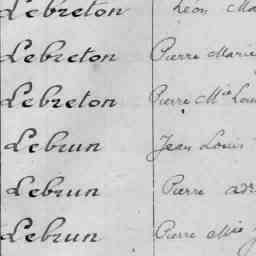 Lebreton Léon
Lebreton Pierre Marie
Lebreton Pierre Mie Louis
Lebrun Jean Louis
Lebrun Pierre
Lebrun Pierre Mie